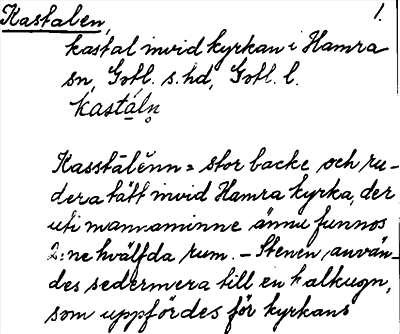 Kastalen, 1.
kastal invid kyrkan i Hamra
sn, Gotl. s. hd, Gotl. l.
kastáln̥
Kasstālĕnn = stor backe och ru-
dera tätt invid Hamra kyrka, der
uti mannaminne ännu funnos
2:ne hvälfda rum. – Stenen, använ-
des sedermera till en kalkugn,
som uppfördes för kyrkans